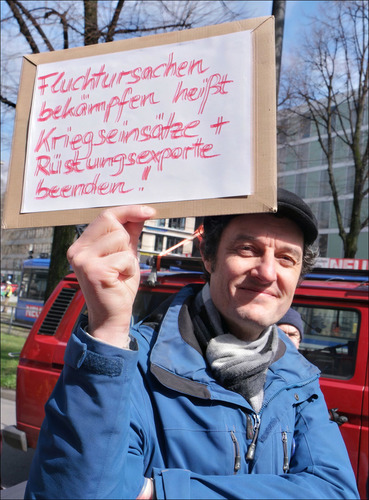 Fluchtursachen
bekämpfen heißt
Kriegseinsätze +
Rüstungsexporte
beenden!